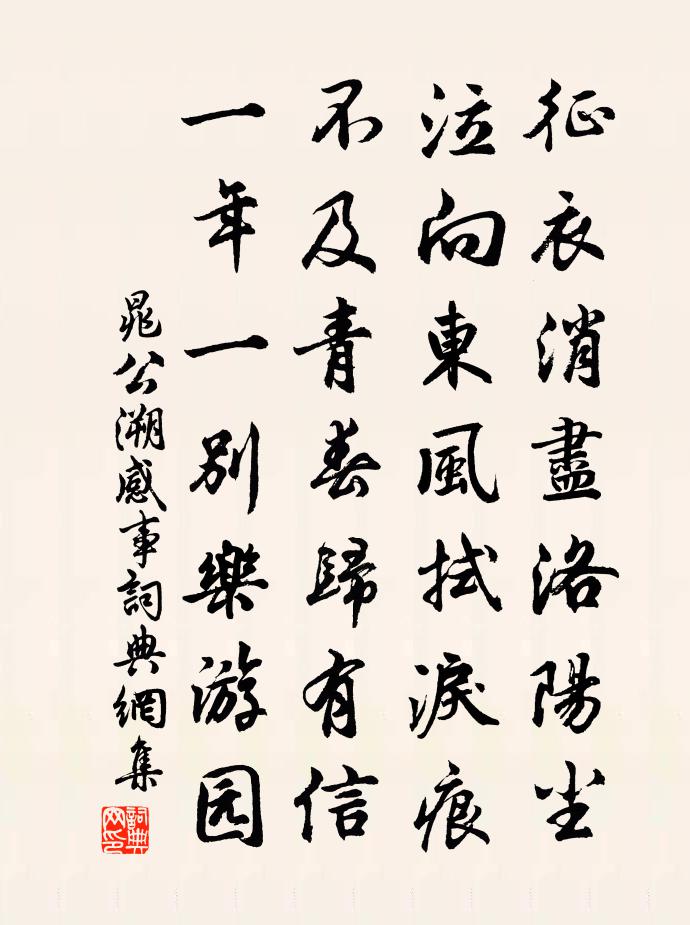 征衣消盡洛陽尘
泣向東風拭淚痕
不及青春歸有信
一年一別樂游园
晁公溯感事詞典網集
詞典网印